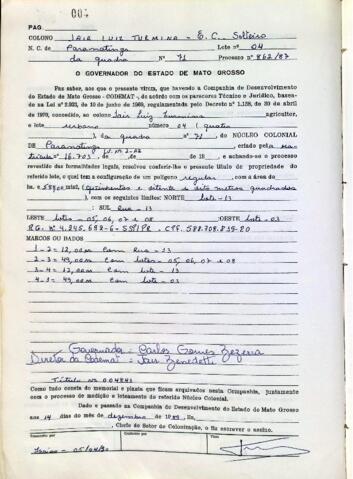 004
PAG.
COLONO JAIR LUIZ TURMINA - E.C. Solteiro
N. C. de Paranatinga Lote nº 04
da quadra Nº 71 Processo nº 862/87
O GOVERNADOR DO ESTADO DE MATO GROSSO
Faz saber, aos que o presente virem, que havendo a Companhia de Desenvolvimento
do Estado de Mato Grosso - CODEMAT -, de acordo com os pareceres Técnico e Jurídico, basea-
do na Lei nº 2.923, de 10 de junho de 1969, regulamentada pelo Decreto nº 1.158, de 30 de abril
de 1970, concedido, ao colono Jair Luiz Turmina agricultor,
o lote urbano número 04 (quatro
), da quadra nº 71, do NÚCLEO COLONIAL
DE Paranatinga, criado pela ma-
trícula nº 16.703, de de de 18, e achando-se o processo
revestido das formalidades legais, resolveu conferir-lhe o presente título de propriedade do
referido lote, o qual tem a configuração de um polígono regular, com a área de
ha. e 588,00 m2, (quinhentos e oitenta e oito metros quadrados
), com os seguintes limites: NORTE lote - 13
: SUL Rua - 13
LESTE lotes - 05, 06, 07 e 08 :OESTE lote - 03
RG. Nº 4.245.692-6-SSP/PR - CPF. 588.708.819-20
MARCOS OU DADOS
1-2= 12,00m com Rua - 13
2-3= 49,00m com lotes - 05, 06, 07 e 08
3-4= 12,00m com lote - 13
4-1= 49,00m com lote - 03
Governador: Carlos Gomes Bezerra
Diretor da Codemat: Jair Benedetti
Título Nº 004843
Como tudo consta do memorial e planta que ficam arquivados nesta Companhia, juntamente
com o processo de medição e loteamento do referido Núcleo Colonial.
Dado e passado na Companhia de Desenvolvimento do Estado de Mato Grosso
aos 14 dias do mês de dezembro de 1989, Eu,
, Chefe do Setor de Colonização, o fiz escrever e assino.
Transcrito por
Conferido por
Visto
05/04/90